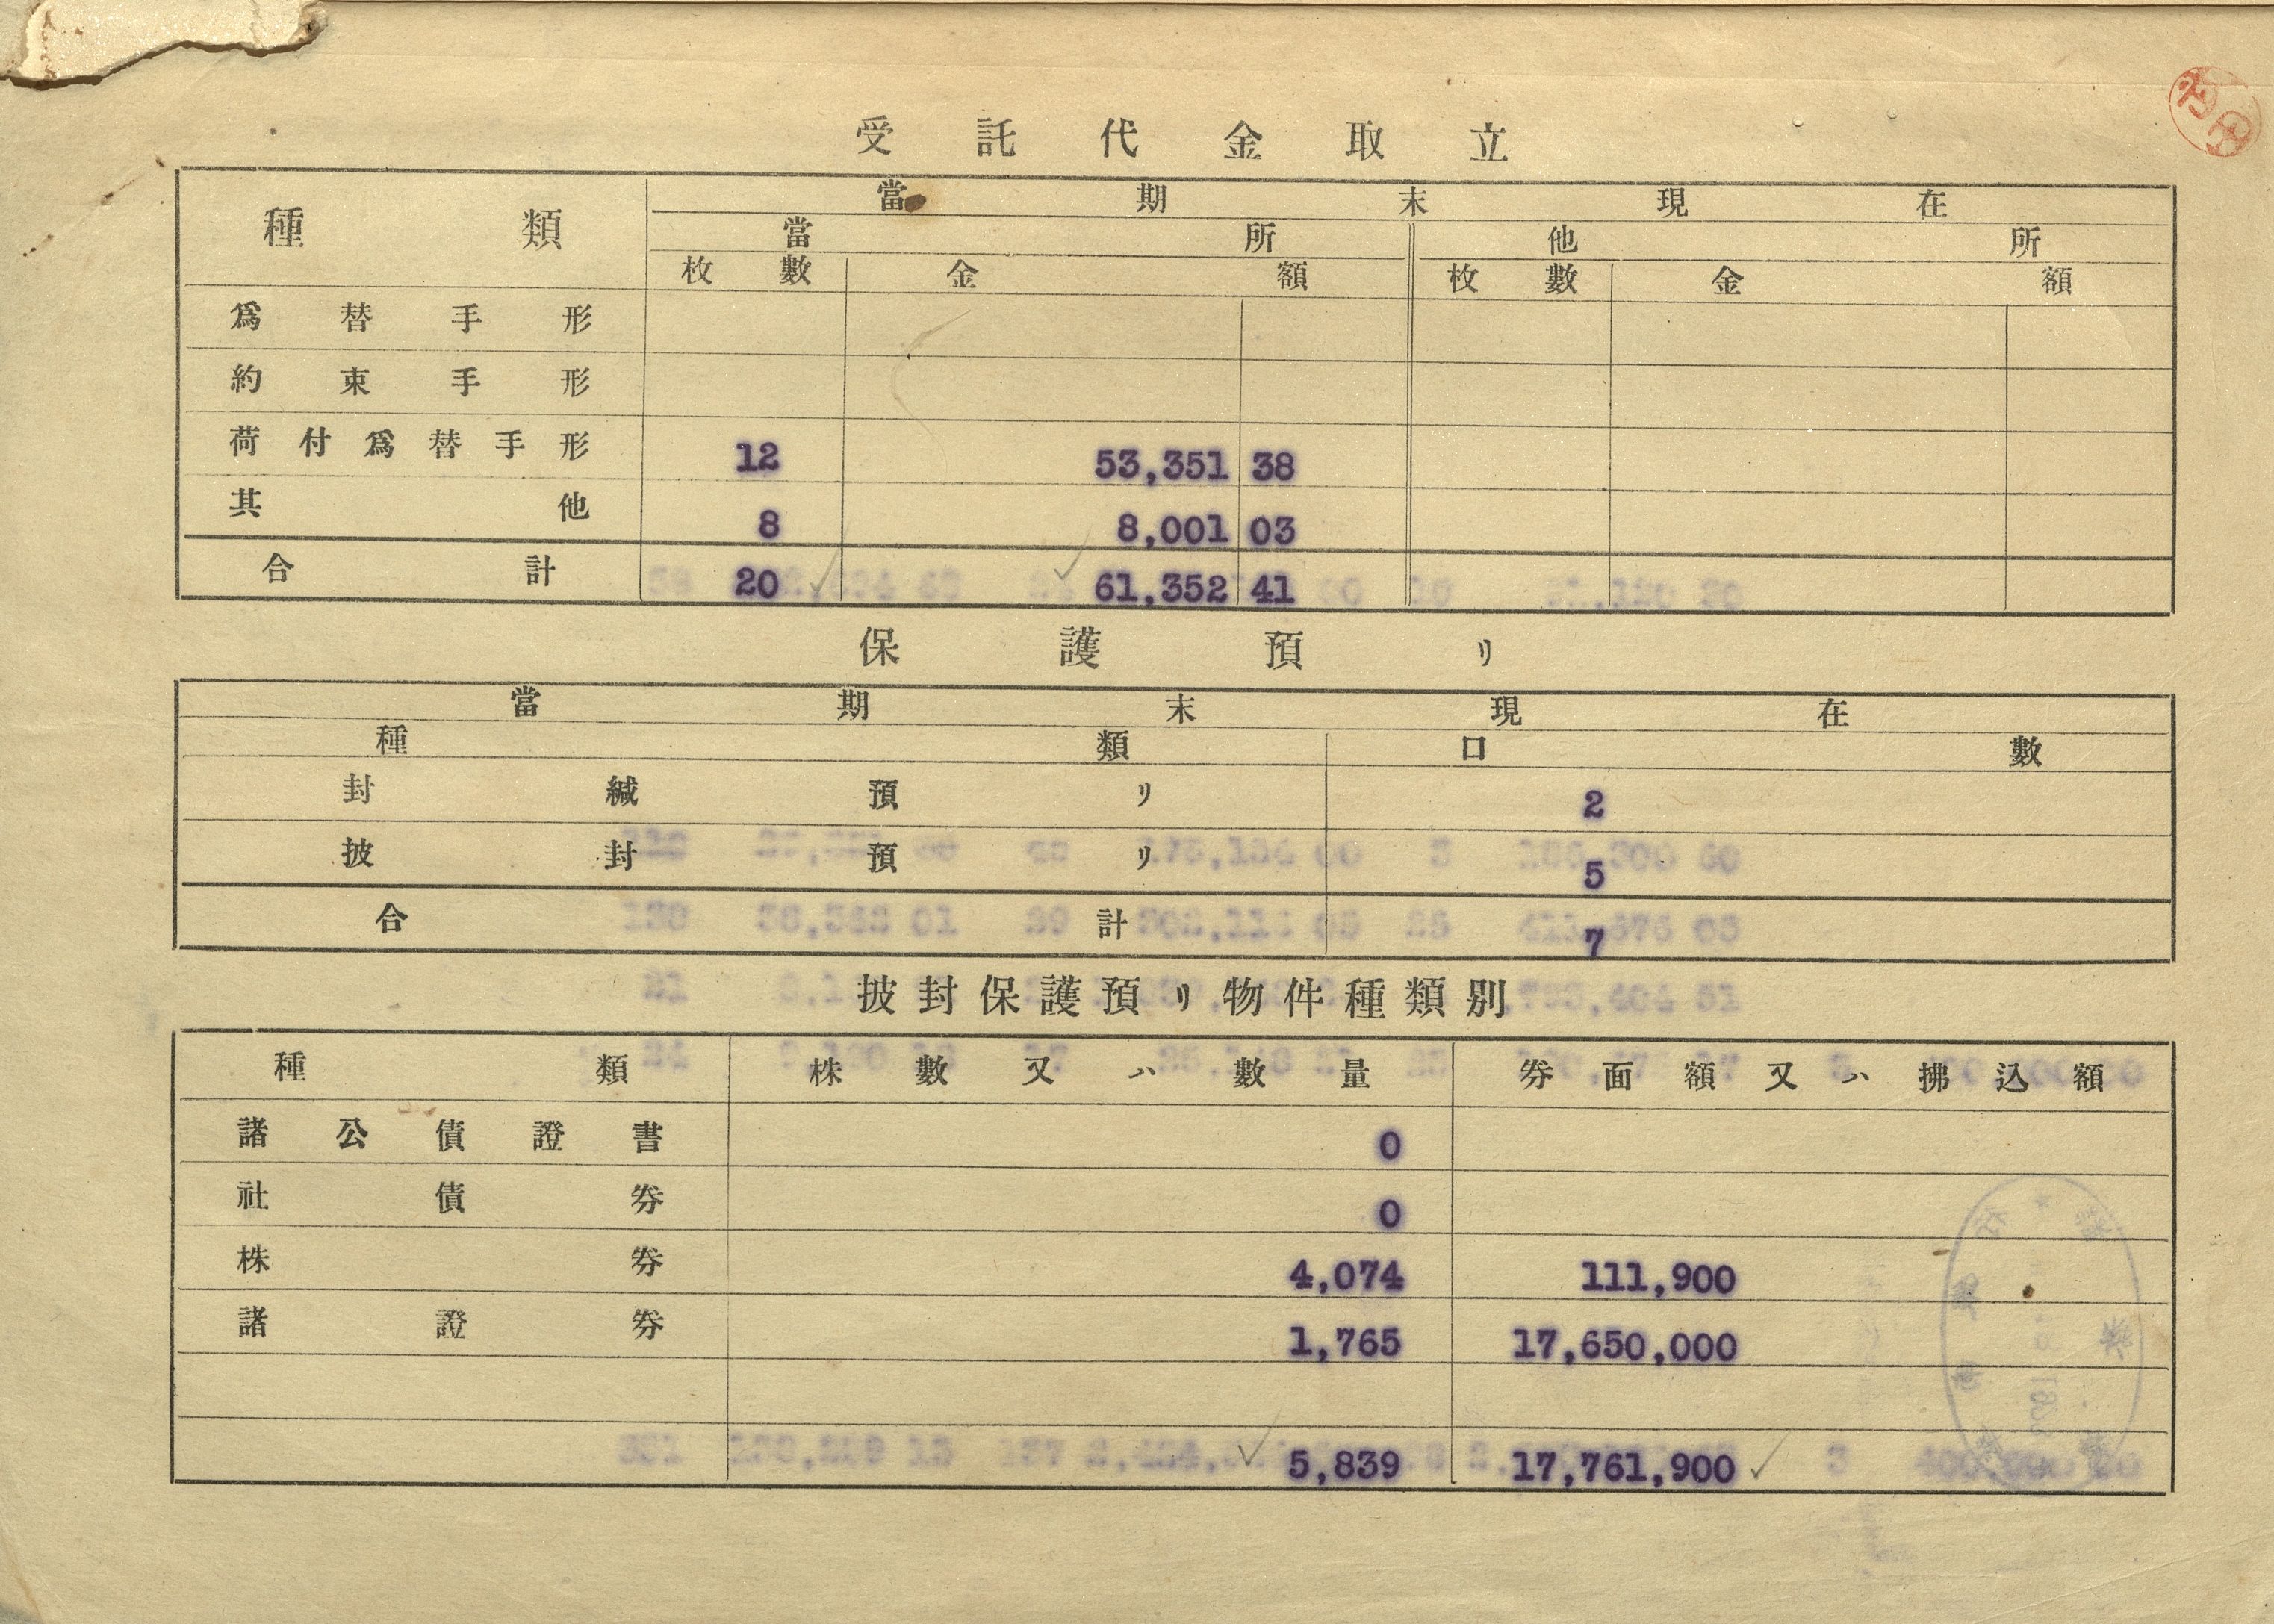 受託代金取立
種類 當期末現在
當所 他所
枚數 金額 枚數 金額
爲替手形
約束手形
荷付爲替手形 12 53,351 38
其他 8 8,001 03
合計 20 61,352 41
保護預リ
當期末現在
種類 口數
封緘預リ 2
披封預リ 5
合計 7
披封保護預リ物件種類別
種類 株數又ハ數量 券面額又ハ拂込額
諸公債證書 0
社債券 0
株券 4,074 111,900
諸證券 1,765 17,650,000
5,839 17,761,900